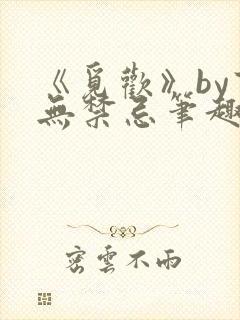 《覓歡》by
無禁忌筆趣
密雲不雨